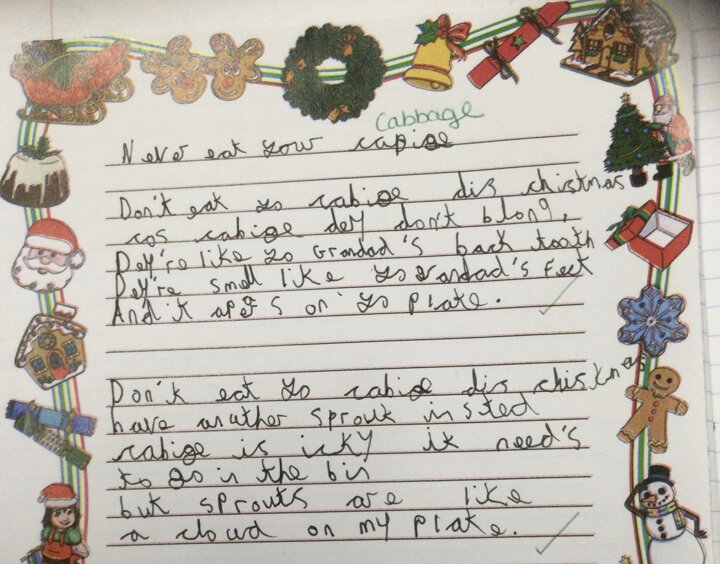 Cabbage
Never eat your capige
Don't eat yo cabige dis chistmas
cos cabige dey don't blong,
Dey're like yo Grandad's back tooth
Dey're smell like yo grandad's feet
And it apers on yo plate.
Don't eat yo cabige dis chistmas
have anuther sprout insted
cabige is icky it need's
to go in the bin
but sprouts are like
a cloud on my plate.